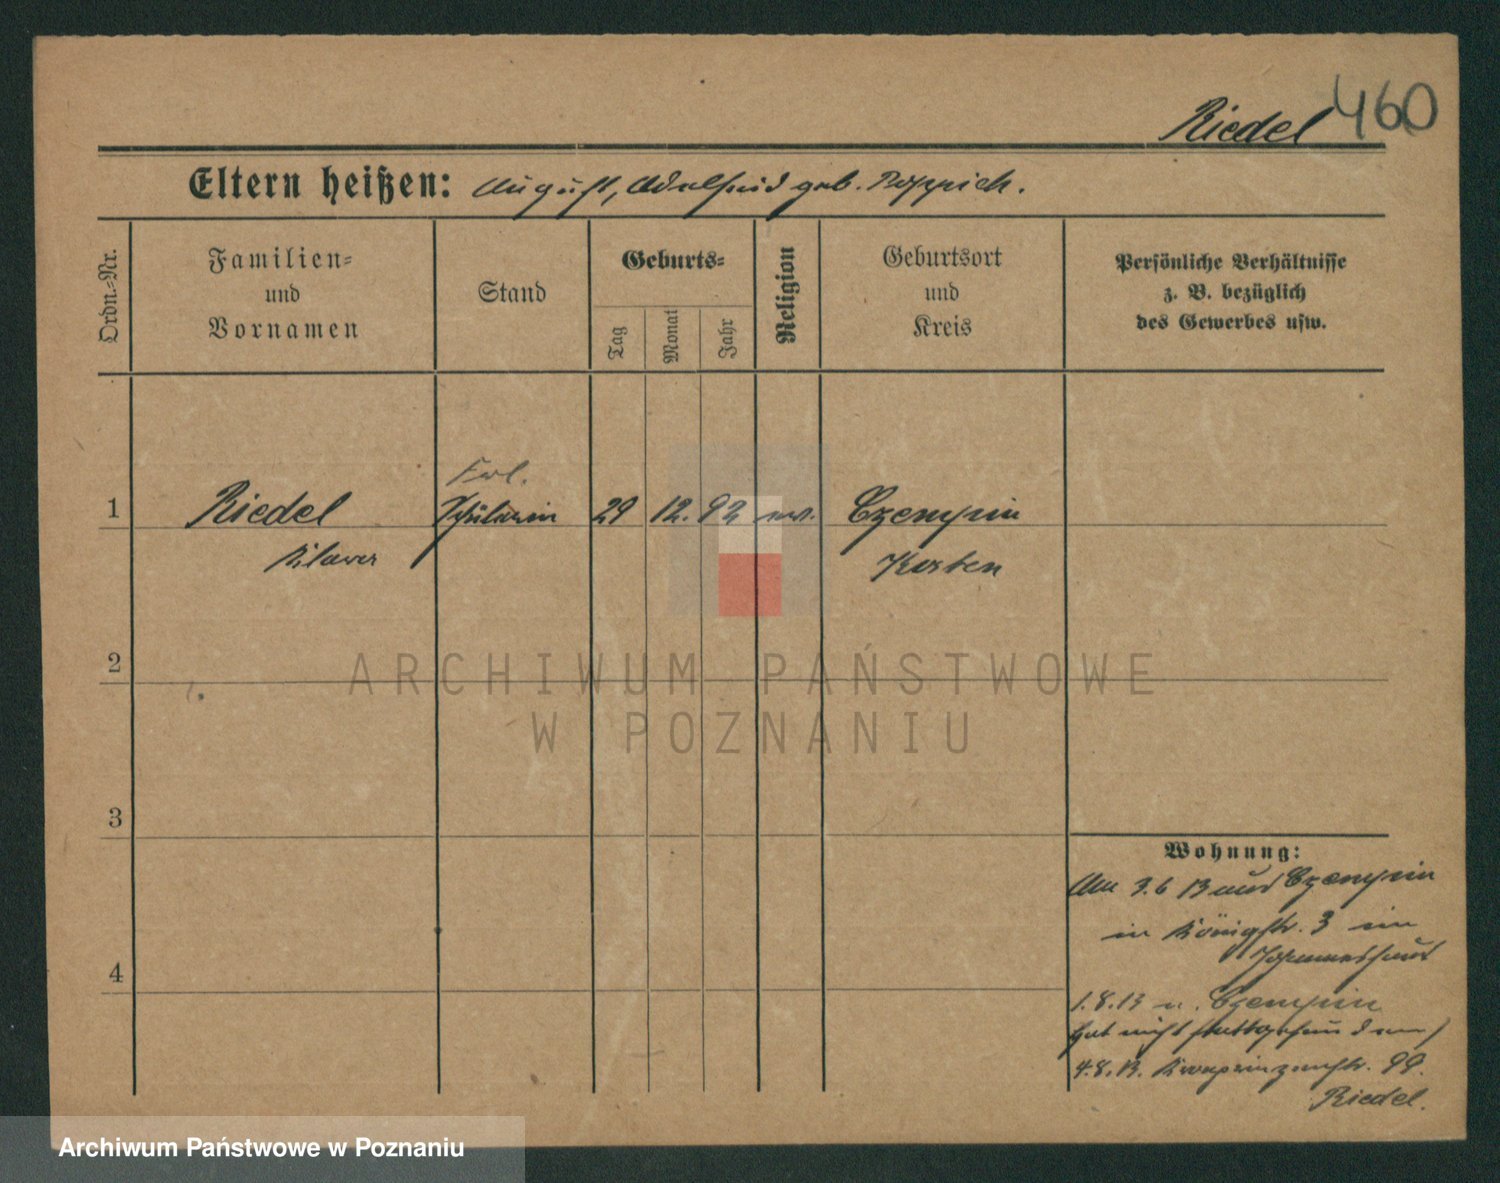 Riedel 460
Eltern heißen: August, Adelheid geb. Roppich.
Ordn.-Nr.
Familien-
und
Vornamen
Stand
Geburts-
Tag
Monat
Jahr
Religion
Geburtsort
und
Kreis
Persönliche Verhältnisse
z. B. bezüglich
des Gewerbes usw.
Frl.
1 Riedel Schülerin 29 12. 92 ev. Czempin
Klara Kosten
2
3
4
Wohnung:
Am 3.6 13 aus Czempin
in Königstr. 3 im
Johanneshaus
1.8.13 n. Czempin
hat nicht stattgefunden
4.8.13. Kronprinzenstr. 99.
Riedel.
ARCHIWUM PAŃSTWOWE
W POZNANIU
Archiwum Państwowe w Poznaniu